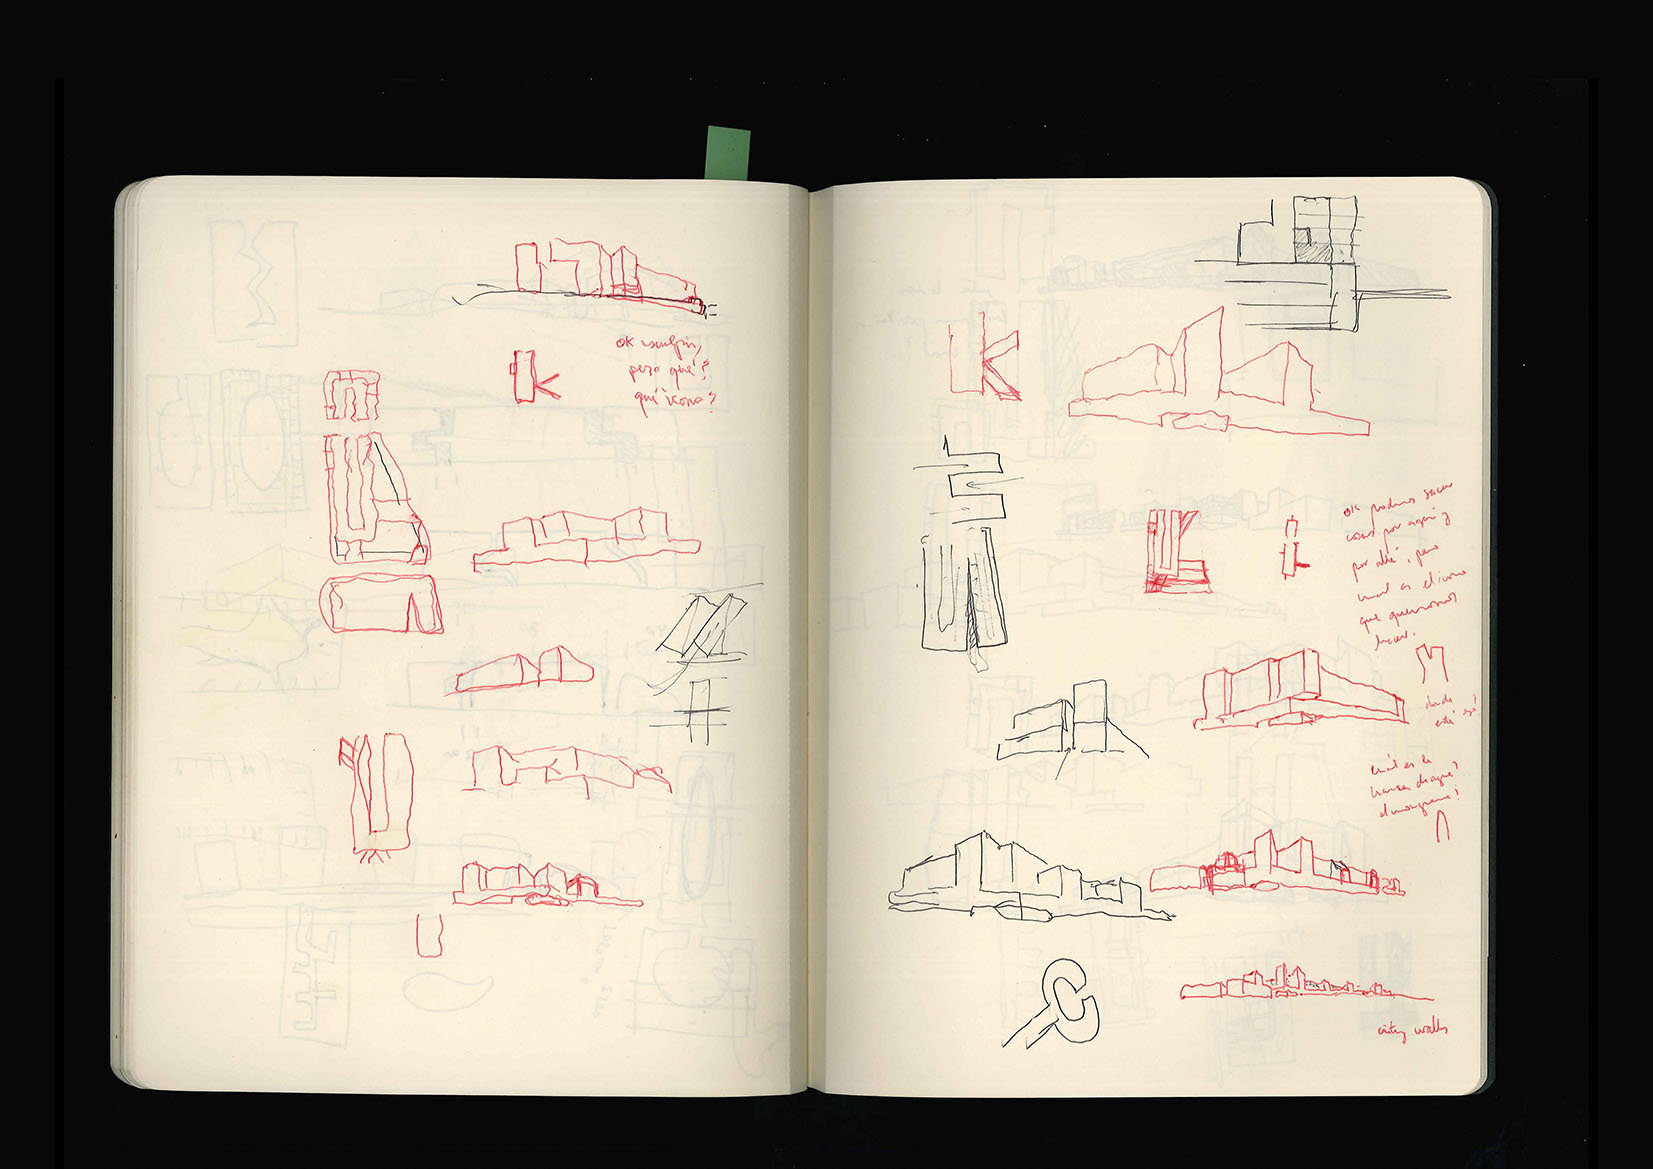 OK esculpir,
pero qué?
qué icono?
k
k
OK podemos sacar
cosas por aquí y
por allá, pero
cual es el icono
que queremos
hacer.
donde
está eso?
cuál es la
el monograma?
city walls